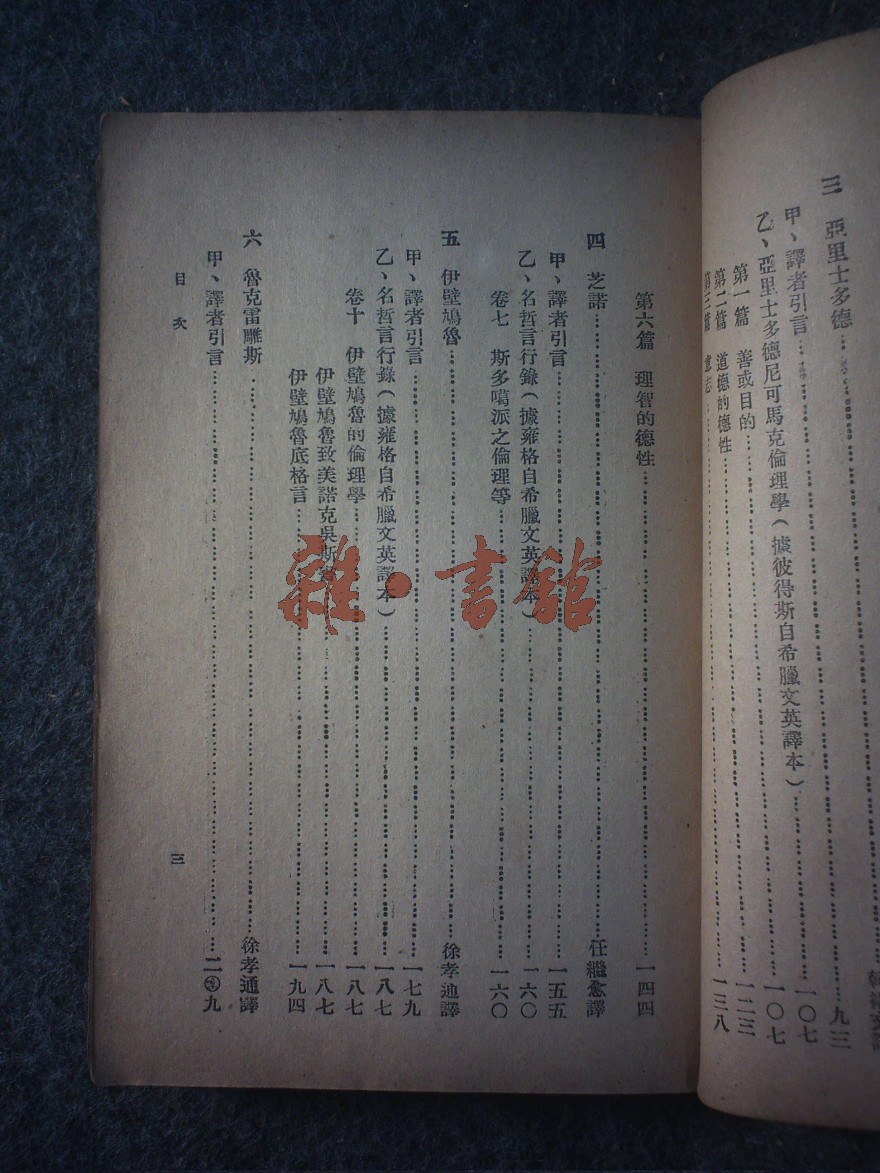 三 亞里士多德
九三
甲、譯者引言 一〇七
乙、亞里士多德尼可馬克倫理學（據彼得斯自希臘文英譯本） 一〇七
第一篇 善或目的 一二三
第二篇 道德的德性 一三八
第三篇 意志
第六篇 理智的德性 一四四
四 芝諾 任繼愈譯
甲、譯者引言 一五五
乙、名哲言行錄（據雍格自希臘文英譯本） 一六〇
卷七 斯多噶派之倫理等 一六〇
五 伊壁鳩魯 徐孝通譯
甲、譯者引言 一七九
乙、名哲言行錄（據雍格自希臘文英譯本） 一八七
卷十 伊壁鳩魯的倫理學 一八七
伊壁鳩魯致美諾克吳斯 一八七
伊壁鳩魯底格言 一九四
六 魯克雷雕斯 徐孝通譯
甲、譯者引言 二 九
目次
三
雜·書館